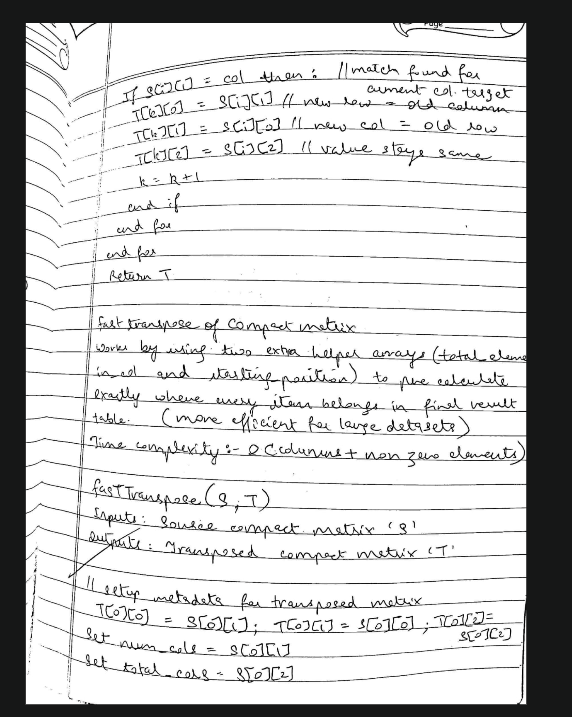 Page
If S[i][1] = col then : // match found for
current col. target
T[k][0] = S[i][1] // new row = old column
T[k][1] = S[i][0] // new col = old row
T[k][2] = S[i][2] // value stays same
k = k + 1
end if
end for
end for
Return T
fast transpose of compact matrix
works by using two extra helper arrays (total_eleme
in_col and starting_position) to pre calculate
exactly where every item belongs in final result
table. (more efficient for large datasets)
Time complexity :- O (columns + non zero elements)
fastTranspose (S, T)
Inputs : Source compact matrix 'S'
outputs : Transposed compact matrix 'T'
// setup metadata for transposed matrix
T[0][0] = S[0][1] ; T[0][1] = S[0][0] ; T[0][2] =
S[0][2]
Set num_cols = S[0][1]
Set total_cols = S[0][2]